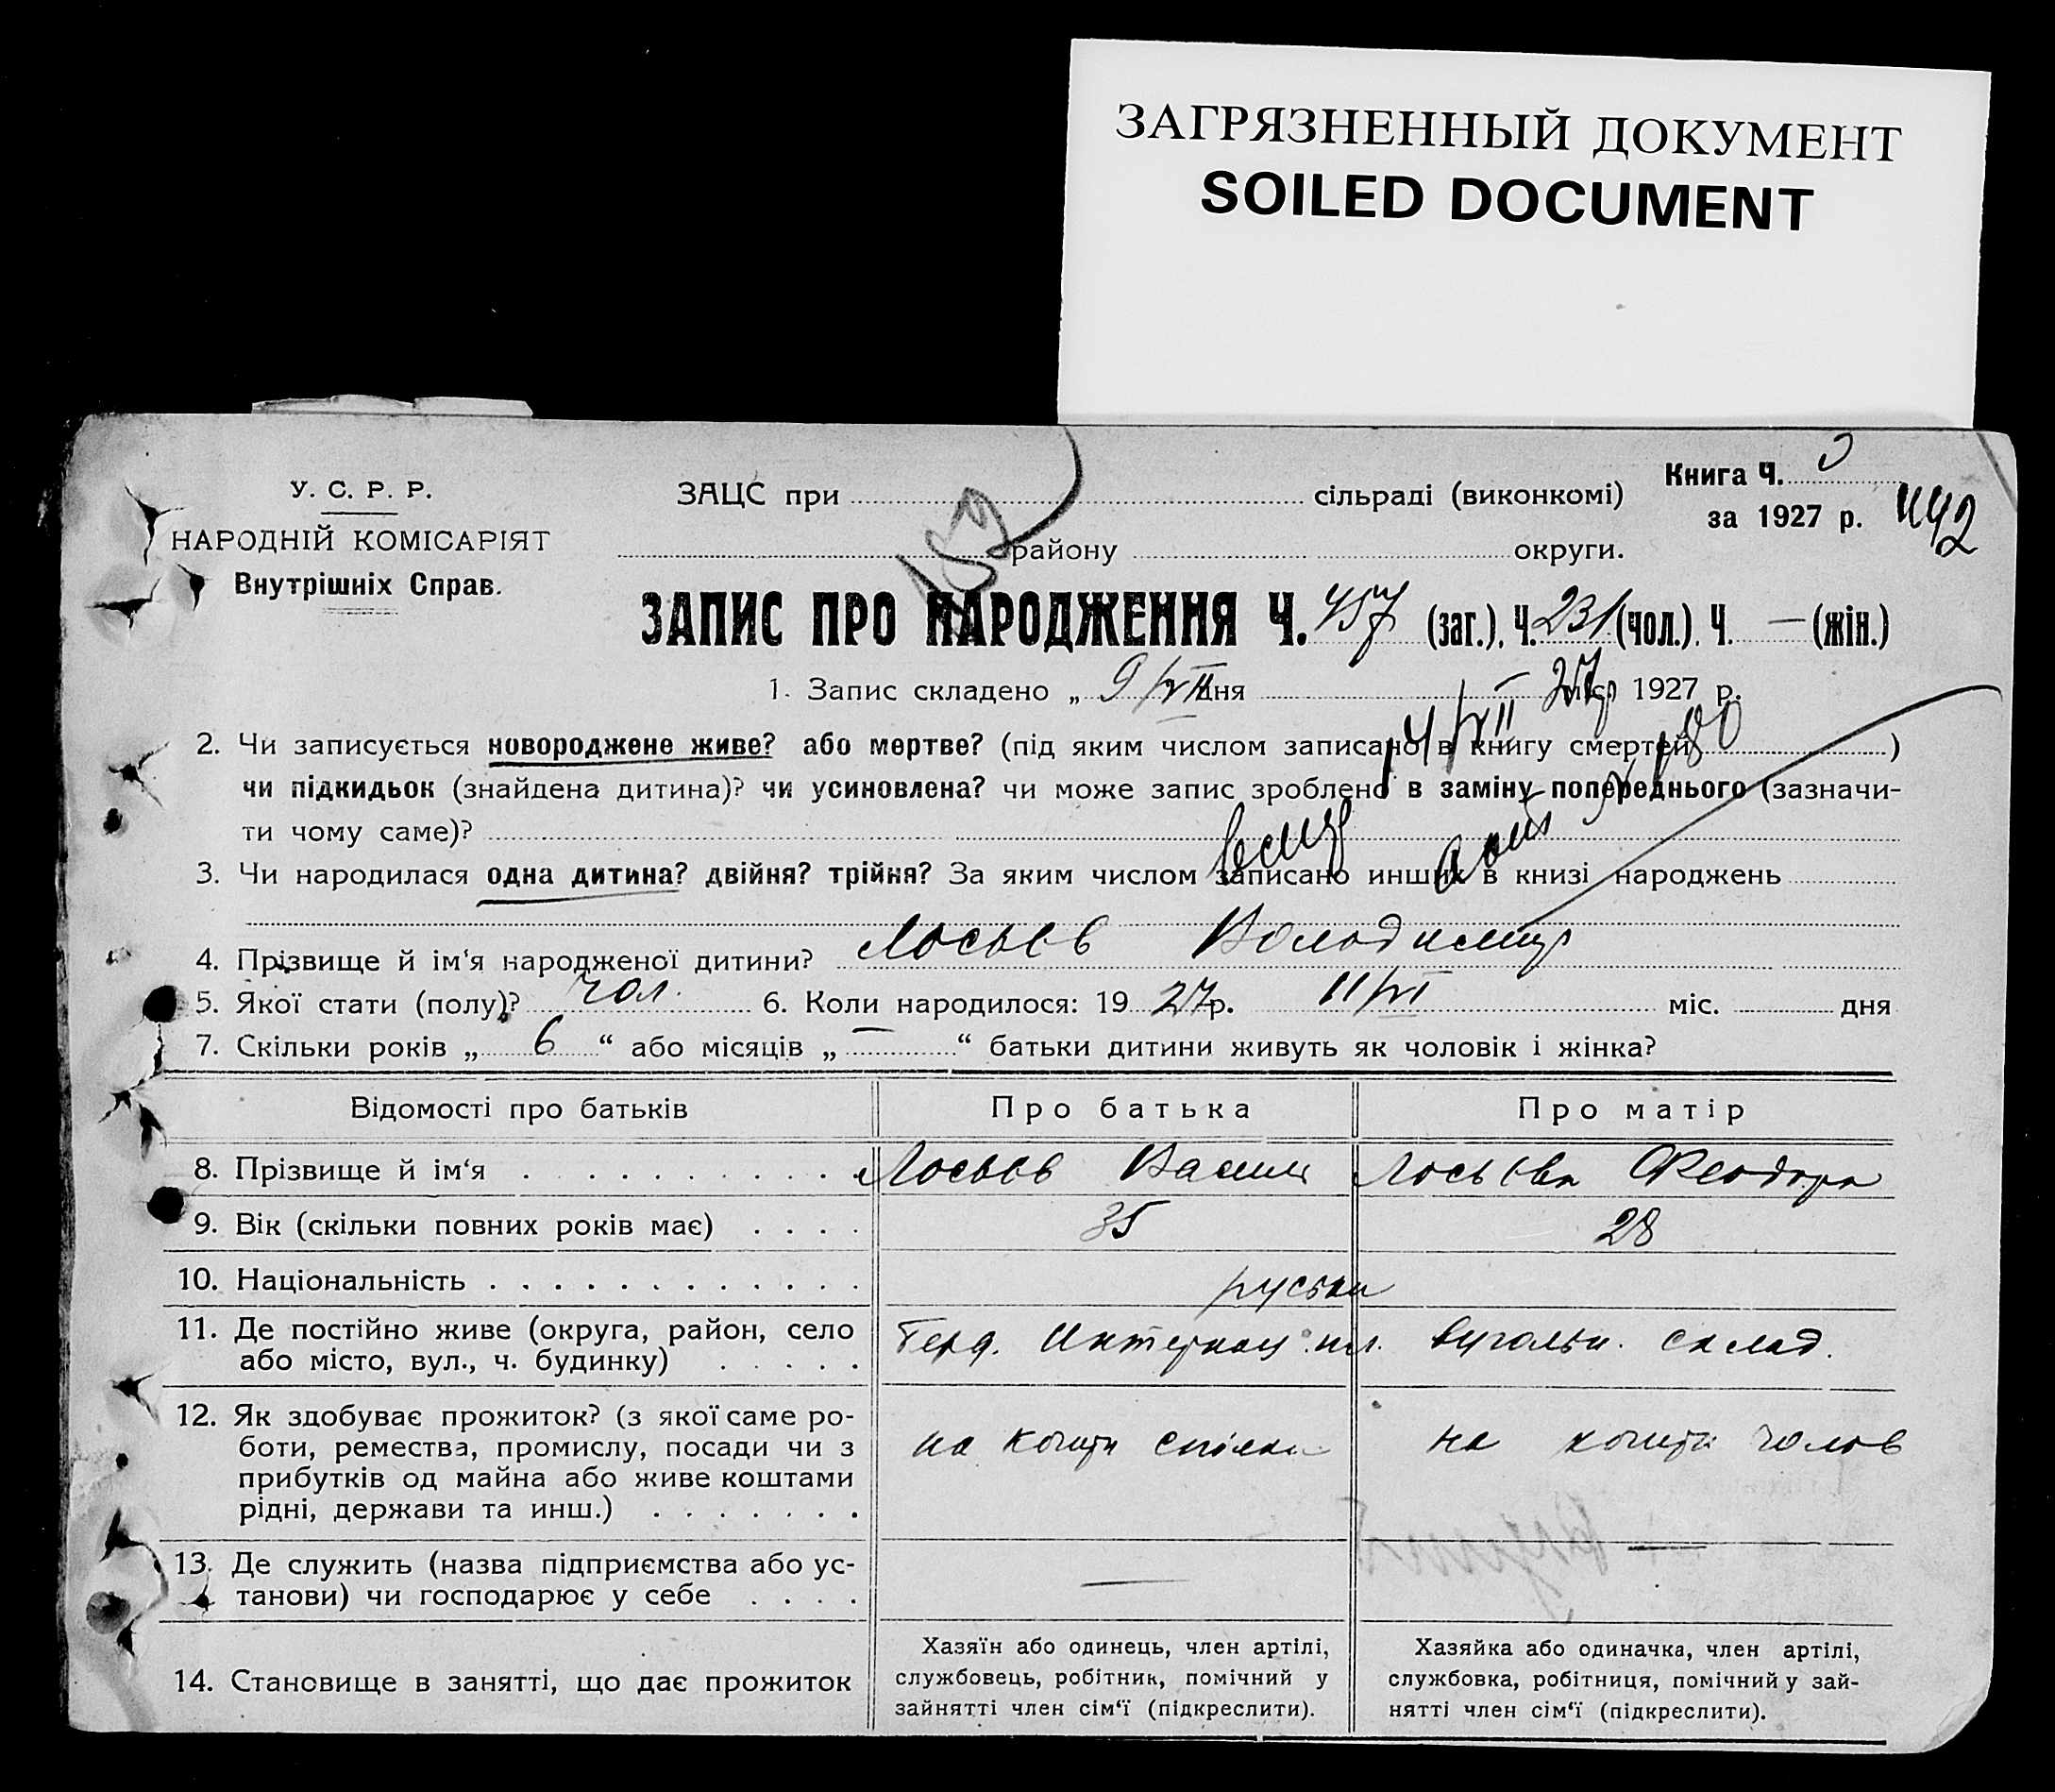 ЗАГРЯЗНЕННЫЙ ДОКУМЕНТ
SOILED DOCUMENT
У. С. Р. Р.
НАРОДНІЙ КОМІСАРІЯТ
Внутрішніх Справ.
ЗАЦС при сільраді (виконкомі)
району округи.
Книга Ч.
за 1927 р.
442
ЗАПИС ПРО НАРОДЖЕННЯ Ч. 457 (заг.), Ч. 231 (чол.). Ч. — (жін.)
1. Запис складено „ 9/VII дня міс. 1927 р.
2. Чи записується новороджене живе? або мертве? (під яким числом записано в книгу смертей )
чи підкидьок (знайдена дитина)? чи усиновлена? чи може запис зроблено в заміну попереднього (зазначи-
ти чому саме)?
3. Чи народилася одна дитина? двійня? трійня? За яким числом записано инших в книзі народжень
4. Прізвище й ім‘я народженої дитини? Лосьєв Володимир
5. Якої стати (полу)? чол. 6. Коли народилося: 1927 р. 11/VI міс. дня
7. Скільки років „ 6 “ або місяців „ — “ батьки дитини живуть як чоловік і жінка?
Відомості про батьків Про батька Про матір
8. Прізвище й ім‘я Лосьєв Василь Лосьєва Феодора
9. Вік (скільки повних років має) 35 28
10. Національність руськи
11. Де постійно живе (округа, район, село
або місто, вул., ч. будинку)
Берд. Интернац. пл. вугольн. склад.
12. Як здобуває прожиток? (з якої саме ро-
боти, ремества, промислу, посади чи з
прибутків од майна або живе коштами
рідні, держави та инш.)
на кошти спілки на кошти чолов
13. Де служить (назва підприємства або ус-
танови) чи господарює у себе — —
14. Становище в занятті, що дає прожиток
Хазяїн або одинець, член артілі,
службовець, робітник, помічний у
зайнятті член сім‘ї (підкреслити).
Хазяйка або одиначка, член артілі,
службовка, робітниця, помічний у зай-
нятті член сім‘ї (підкреслити).